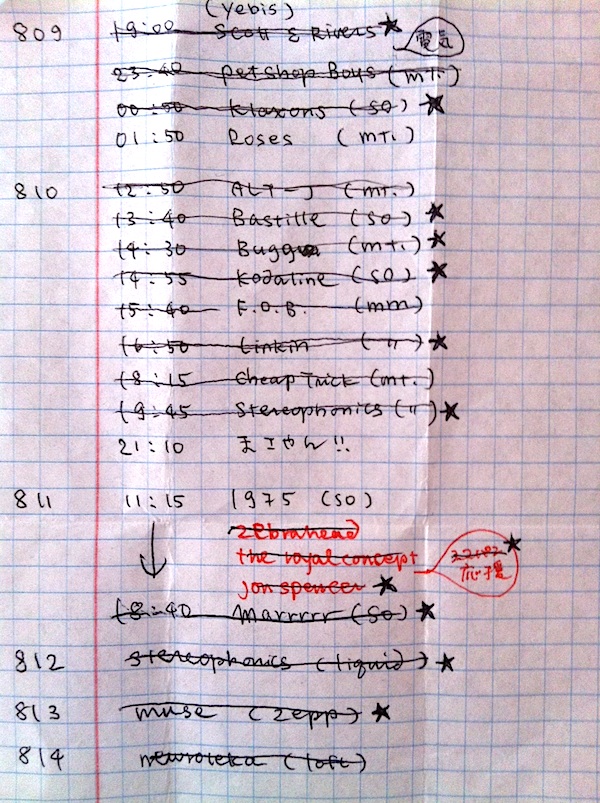 (Yebis)
809 19:00 Scott & Rivers★ 電気
23:40 petshop Boys (mt.)
00:50 Klaxons (SO) ★
01:50 Roses (mt.)
810 12:50 ALT-J (mt.)
13:40 Bastille (SO) ★
14:30 Bugg (mt.) ★
14:55 Kodaline (SO) ★
15:40 F.O.B. (mm)
16:50 Linkin (〃) ★
18:15 Cheap Trick (mt.)
19:45 Stereophonics (〃) ★
21:10 まこやん!!
811 11:15 1975 (SO)
↓ zebrahead
the royal concept
jon spencer ★ 応援 ★
18:40 marrrrr (SO) ★
812 stereophonics (liquid) ★
813 muse (zepp) ★
814 newroteka (loft)